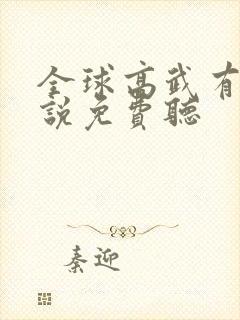 全球高武有
說免費聽
秦迎